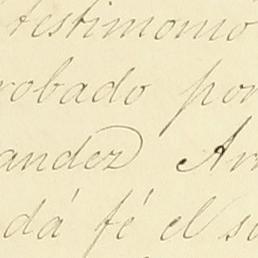 testimonio
robado por
andez Ar
dá fé el s